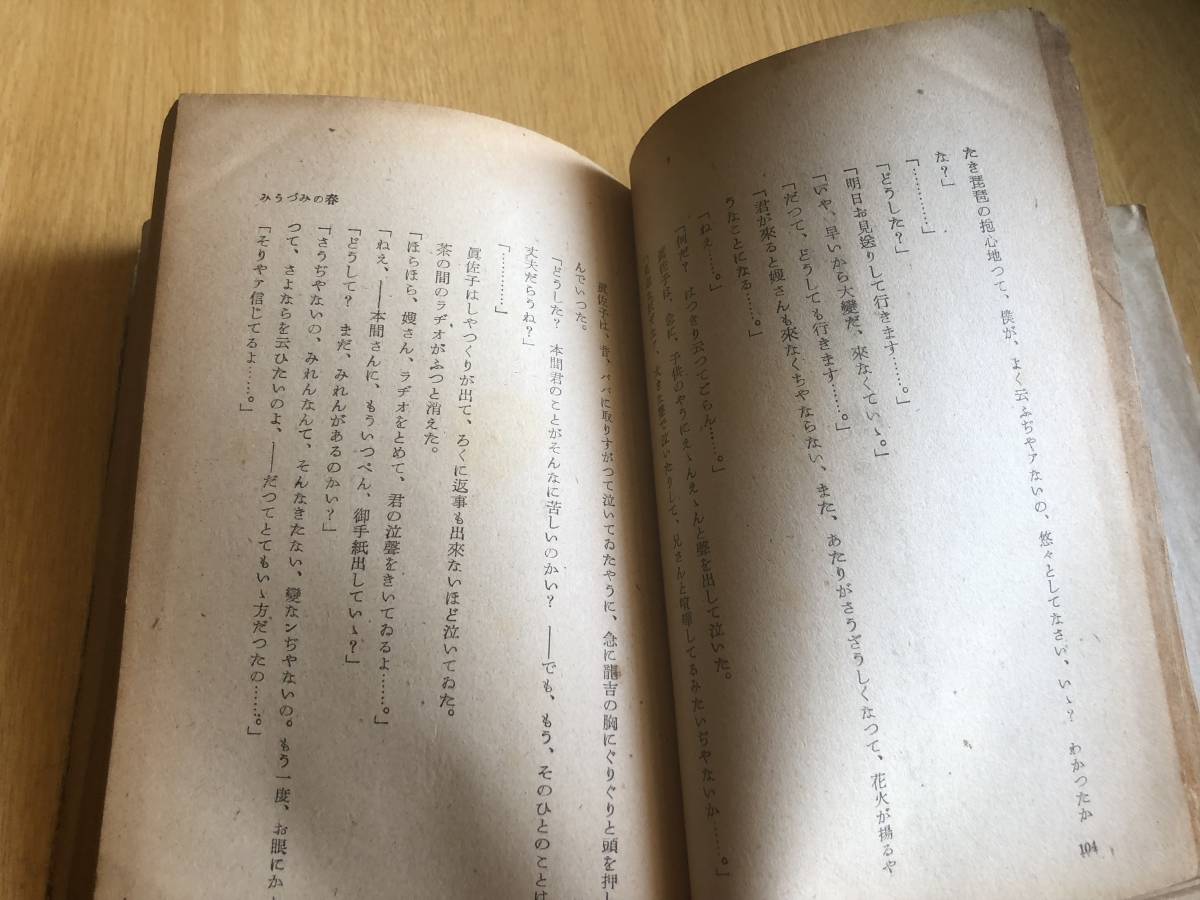 104
たき琵琶の抱心地つて、僕が、よく云ふぢやァないの、悠々としてなさい、いゝ？　わかつたか
な？」
「…………」
「どうした？」
「明日お見送りして行きます……。」
「いや、早いから大變だ、來なくていゝ。」
「だつて、どうしても行きます……。」
「君が來ると嫂さんも來なくちやならない、また、あたりがさうざうしくなつて、花火が揚るや
うなことになる……。」
「ねえ……。」
「何だ？　はつきり云つてごらん……。」
眞佐子は、急に、子供のやうにえゝんえゝんと聲を出して泣いた。
大きな聲で泣いたりして、兄さんと喧嘩してるみたいぢやないか……。」
眞佐子は、昔、パパに取りすがつて泣いてゐたやうに、急に龍吉の胸にぐりぐりと頭を押し
んでいつた。
「どうした？　本間君のことがそんなに苦しいのかい？　――でも、もう、そのひとのことは
丈夫だらうね？」
「…………」
眞佐子はしやつくりが出て、ろくに返事も出來ないほど泣いてゐた。
茶の間のラヂオがふつと消えた。
「ほらほら、嫂さん、ラヂオをとめて、君の泣聲をきいてゐるよ……。」
「ねえ、――本間さんに、もういつぺん、御手紙出していゝ？」
「どうして？　まだ、みれんがあるのかい？」
「さうぢやないの、みれんなんて、そんなきたない、變なンぢやないの。もう一度、お眼にか
つて、さよならを云ひたいのよ、――だつてとてもいゝ方だつたの……。」
「そりやァ信じてるよ……。」
春のみづうみ